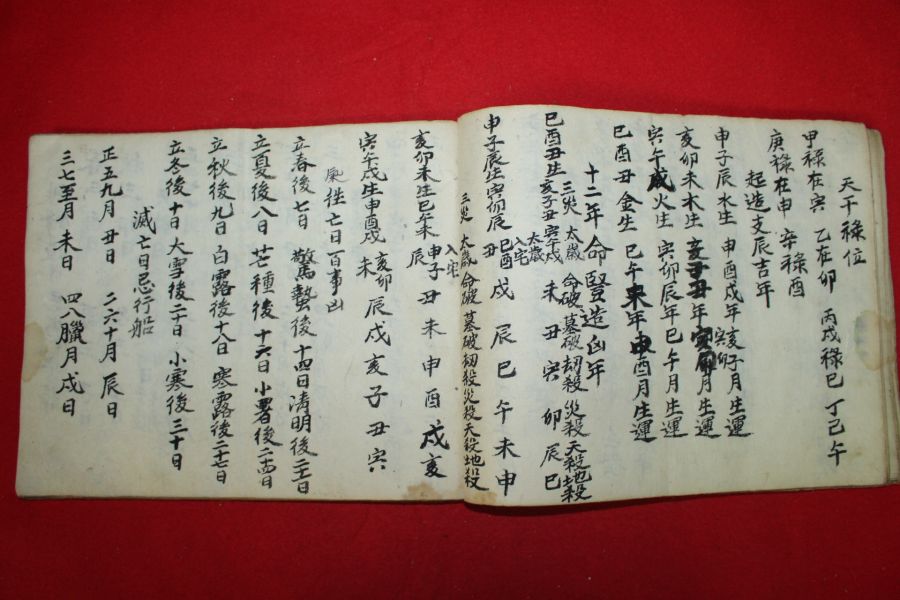 天干祿位
甲祿在寅 乙在卯 丙戊祿巳 丁己午
庚祿在申 辛祿酉
起造支辰吉年
申子辰水生 申酉戌年亥子月生運
亥卯未木生 亥子丑年寅卯月生運
寅午戌火生 寅卯辰年巳午月生運
巳酉丑金生 巳午未年申酉月生運
十二年命豎造凶年
三災 太歲 命破 墓破 刼殺 災殺 天殺 地殺
巳酉丑生亥子丑 寅午戌 未 丑 寅 卯 辰 巳
太歲
入宅
申子辰生寅卯辰 巳酉丑 戌 辰 巳 午 未 申
三災 太歲 命破 墓破 刼殺 災殺 天殺 地殺
入宅
亥卯未生巳午未 申子辰 丑 未 申 酉 戌 亥
寅午戌生申酉戌 亥卯未 辰 戌 亥 子 丑 寅
亡日百事凶
立春後七日 驚蟄後十四日 清明後二十一日
立夏後八日 芒種後十六日 小暑後二十四日
立秋後九日 白露後十八日 寒露後二十七日
立冬後十日 大雪後二十日 小寒後三十日
滅亡日忌行船
正五九月丑日 二六十月辰日
三七至月未日 四八臘月戌日